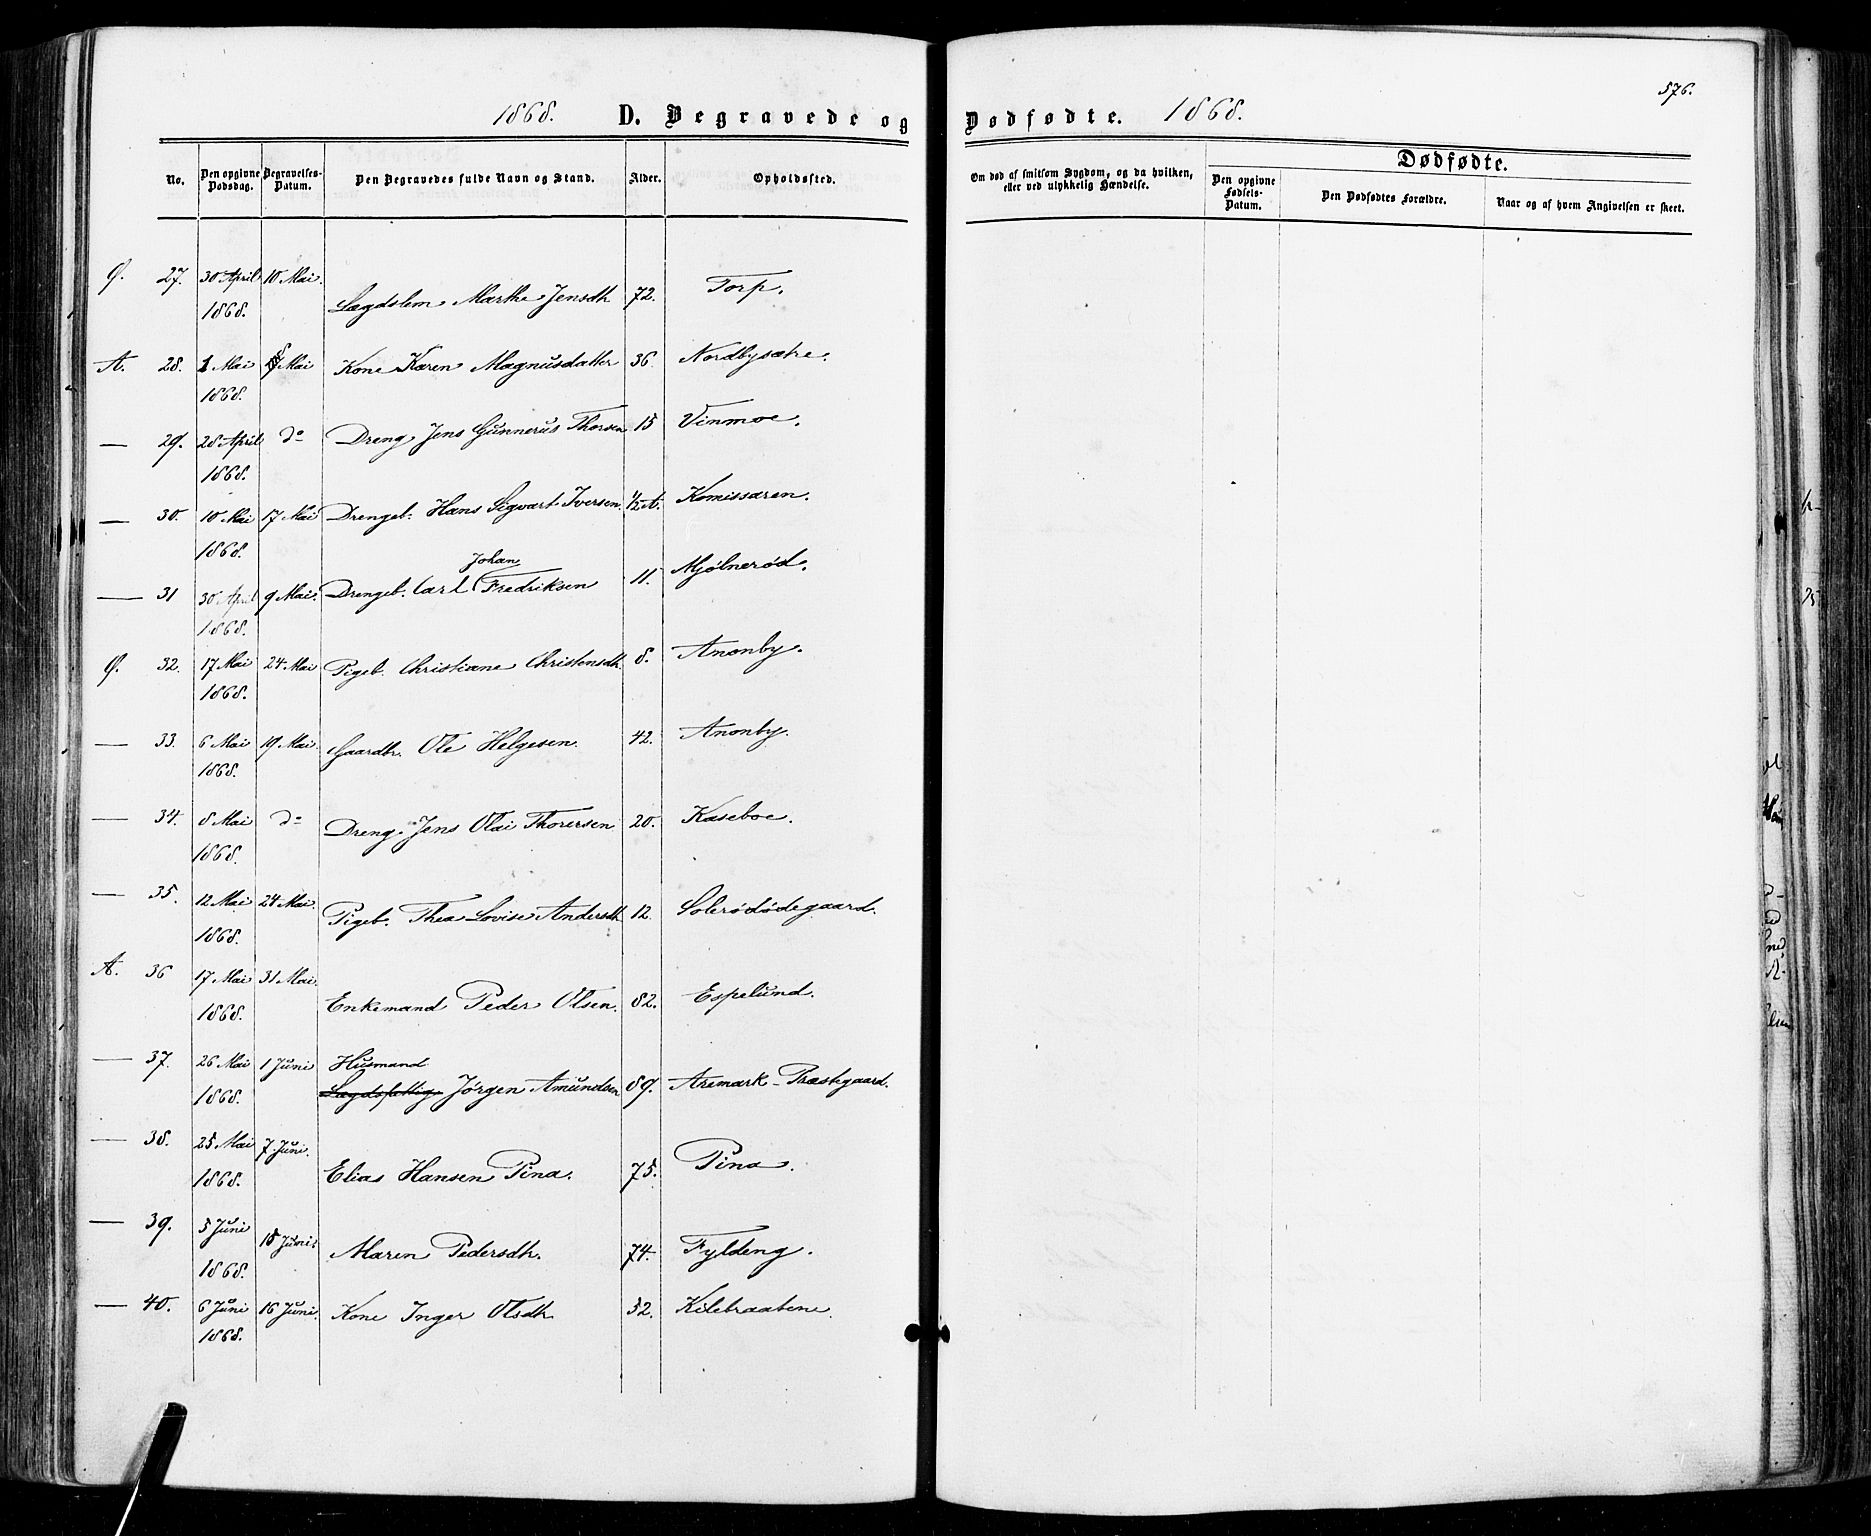 1868. D. Begravede og Dødfødte. 1868.
576.
No. Den opgivne Dødsdag. Begravelses-Datum. Den Begravedes fulde Navn og Stand. Alder. Opholdssted.
Om død af smitsom Sygdom, og da hvilken, eller ved ulykkelig Hændelse.
Dødfødte.
Den opgivne Fødsels-Datum. Den Dødfødtes Forældre. Naar og af hvem Angivelsen er skeet.
Ø. 27. 30 April 10 Mai.
1868. Lægdslem Marthe Jensdtr 72. Torp.
A. 28. 1 Mai 8 Mai Kone Karen Magnusdatter 36. Nordbysætre.
1868.
— 29. 28 April do Dreng Jens Gunnerus Thorsen 15 Vinmoe.
1868.
— 30. 10 Mai 17 Mai Drengeb. Hans Sigvart Iversen. ½ A. Komissaren.
1868.
Johan
— 31 30 April 9 Mai. Drengeb. Carl Fredriksen 11. Mjølnerød.
1868.
Ø. 32. 17 Mai 24 Mai Pigeb. Christiane Christensdtr. 8. Anonby.
1868.
— 33. 6 Mai 19 Mai. Gaardbr. Ole Helgesen. 42. Anonby.
1868.
— 34. 8 Mai do Dreng. Jens Olai Thorersen 20. Kaseboe.
1868.
— 35. 12 Mai 24 Mai. Pigeb. Thea Lovise Andersdtr. 12. Solerødødegaard.
1868.
A. 36 17 Mai 31 Mai.
1868. Enkemand Peder Olsen. 82. Espelund.
— 37. 26 Mai 1 Juni Husmand
1868. Lægdsfattig Jörgen Amundsen 89. Aremark-Præstegaard.
— 38. 25 Mai 7. Juni.
1868. Elias Hansen Pina. 75. Pina.
— 39. 5 Juni
1868. 15 Juni. Maren Pedersdtr. 74. Fyldeng.
— 40. 6 Juni 16 Juni. Kone Inger Olsdtr. 52. Kilebraatene.
1868.